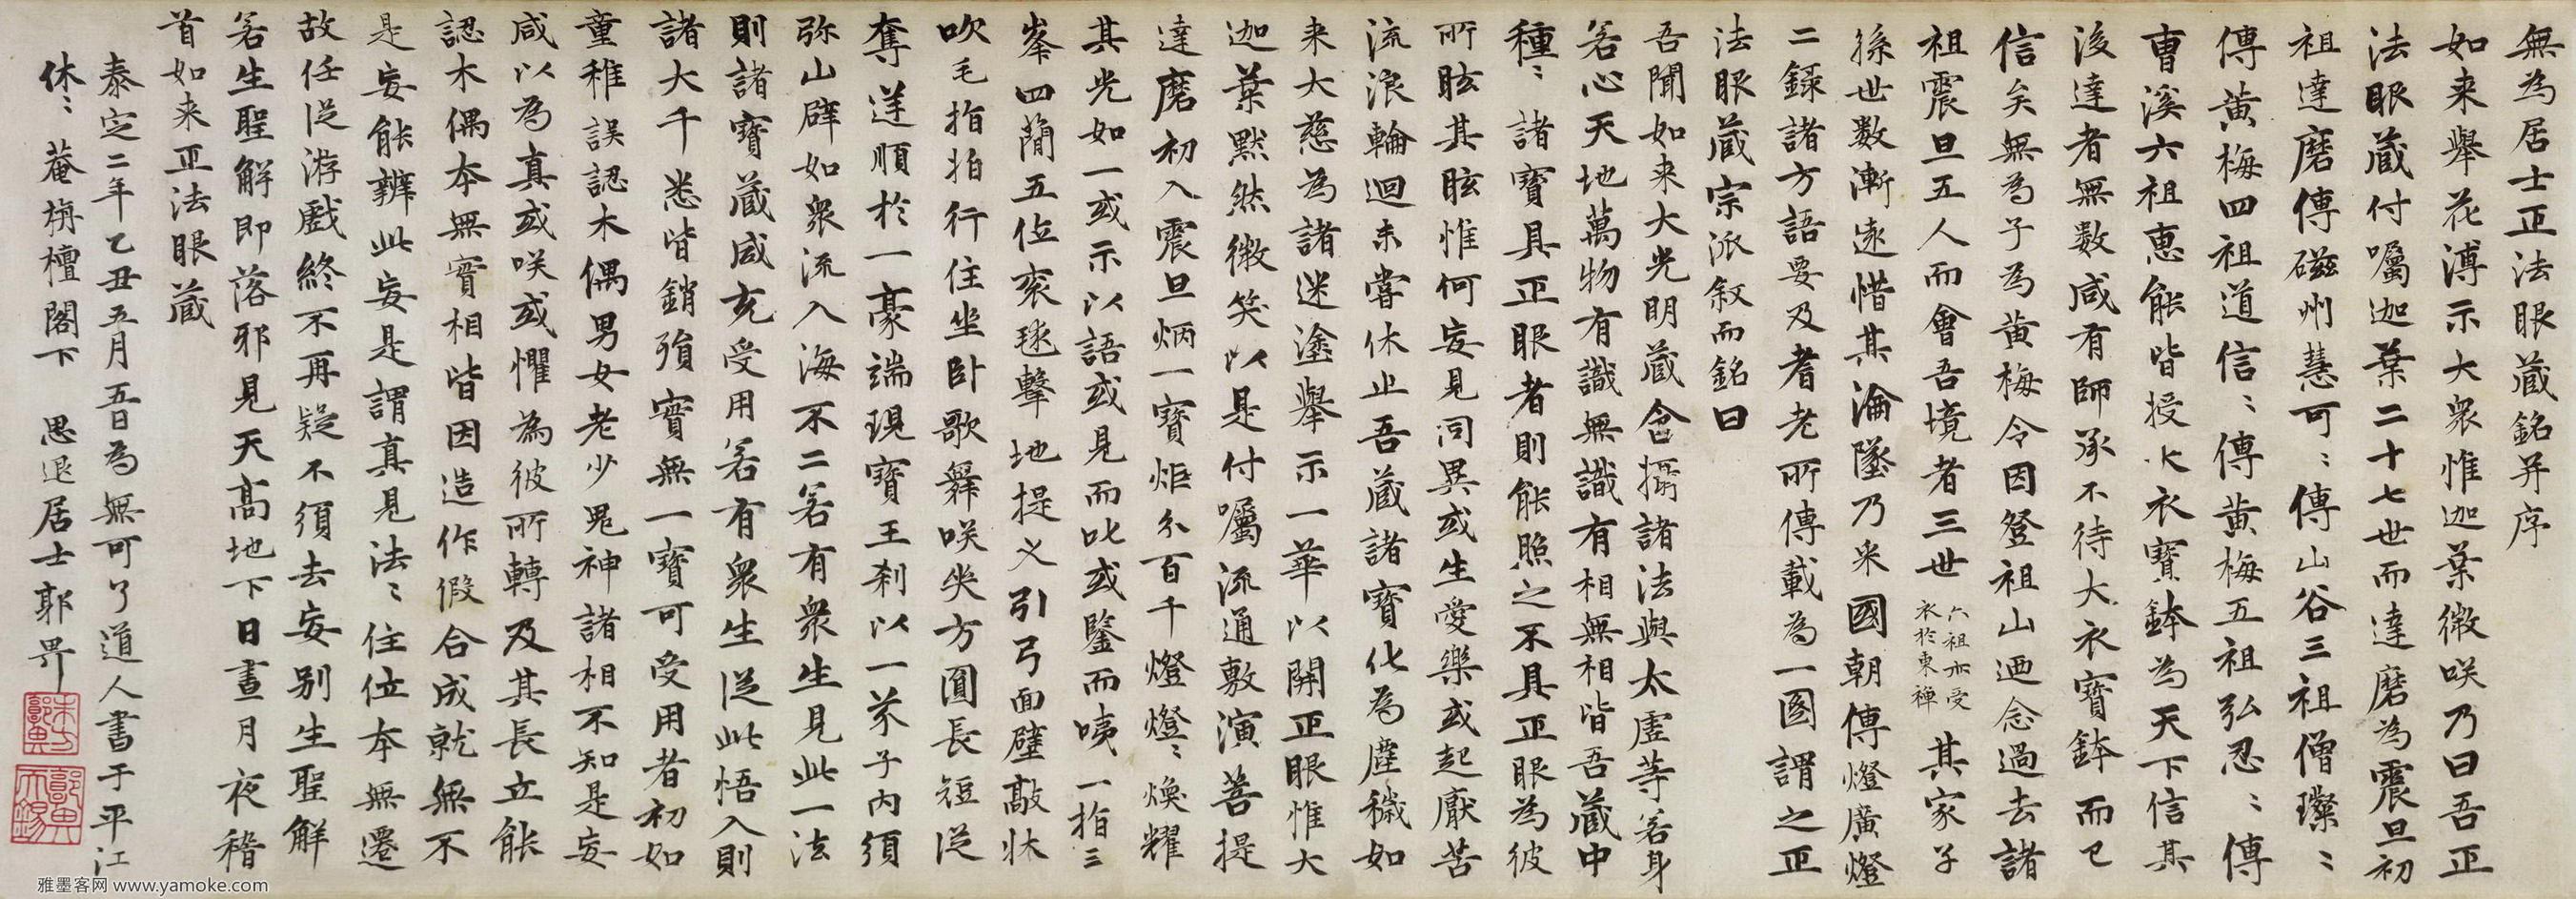 無為居士正法眼藏銘并序
如来舉花溥示大衆惟迦葉微咲乃曰吾正
法眼藏付囑迦葉二十七世而達磨為震旦初
祖達磨傳磁州慧可〻傳山谷三祖僧璨〻
傳黄梅四祖道信〻傳黄梅五祖弘忍〻傳
曹溪六祖惠能皆授大衣寶鉢為天下信其
後達者無数咸有師承不待大衣寶鉢而已
信矣無為子為黄梅令因登祖山迺念過去諸
祖震旦五人而會吾境者三世六祖亦受衣於東禅其家子
孫世数漸遠惜其淪墜乃采國朝傳燈廣燈
二録諸方語要及耆老所傳載為一圖謂之正
法眼藏宗派叙而銘曰
吾聞如来大光明藏含攝諸法與太虚等若身
若心天地萬物有識無識有相無相皆吾藏中
種〻諸寶具正眼者則能照之不具正眼為彼
所眩其眩惟何妄見同異或生愛樂或起厭苦
流浪輪迴未嘗休止吾藏諸寶化為塵穢如
来大慈為諸迷塗舉示一華以開正眼惟大
迦葉默然微笑以是付囑流通敷演菩提
達磨初入震旦炳一寶炬分百千燈燈〻煥耀
其光如一或示以語或見而叱或鑒而咦一指三
峯四藺五位衮毬擊地提义引弓面壁敲牀
吹毛指拍行住坐卧歌舞咲哭方圓長短從
奪逆順於一豪端現寶王刹以一芥子内須
弥山辟如衆流入海不二若有衆生見此一法
則諸寶藏咸充受用若有衆生從此悟入則
諸大千悉皆銷殞實無一寶可受用者初如
童稚誤認木偶男女老少鬼神諸相不知是妄
咸以為真或咲或懼為彼所轉及其長立能
認木偶本無實相皆因造作假合成就無不
是妄能辨此妄是謂真見法〻住位本無遷
故任從游戲終不再疑不須去妄别生聖解
若生聖解即落邪見天高地下日晝月夜稽
首如来正法眼藏
泰定二年乙丑五月五日為無可了道人書于平江
休〻菴栴檀閣下 思退居士郭畀
雅墨客网 www.yamoke.com